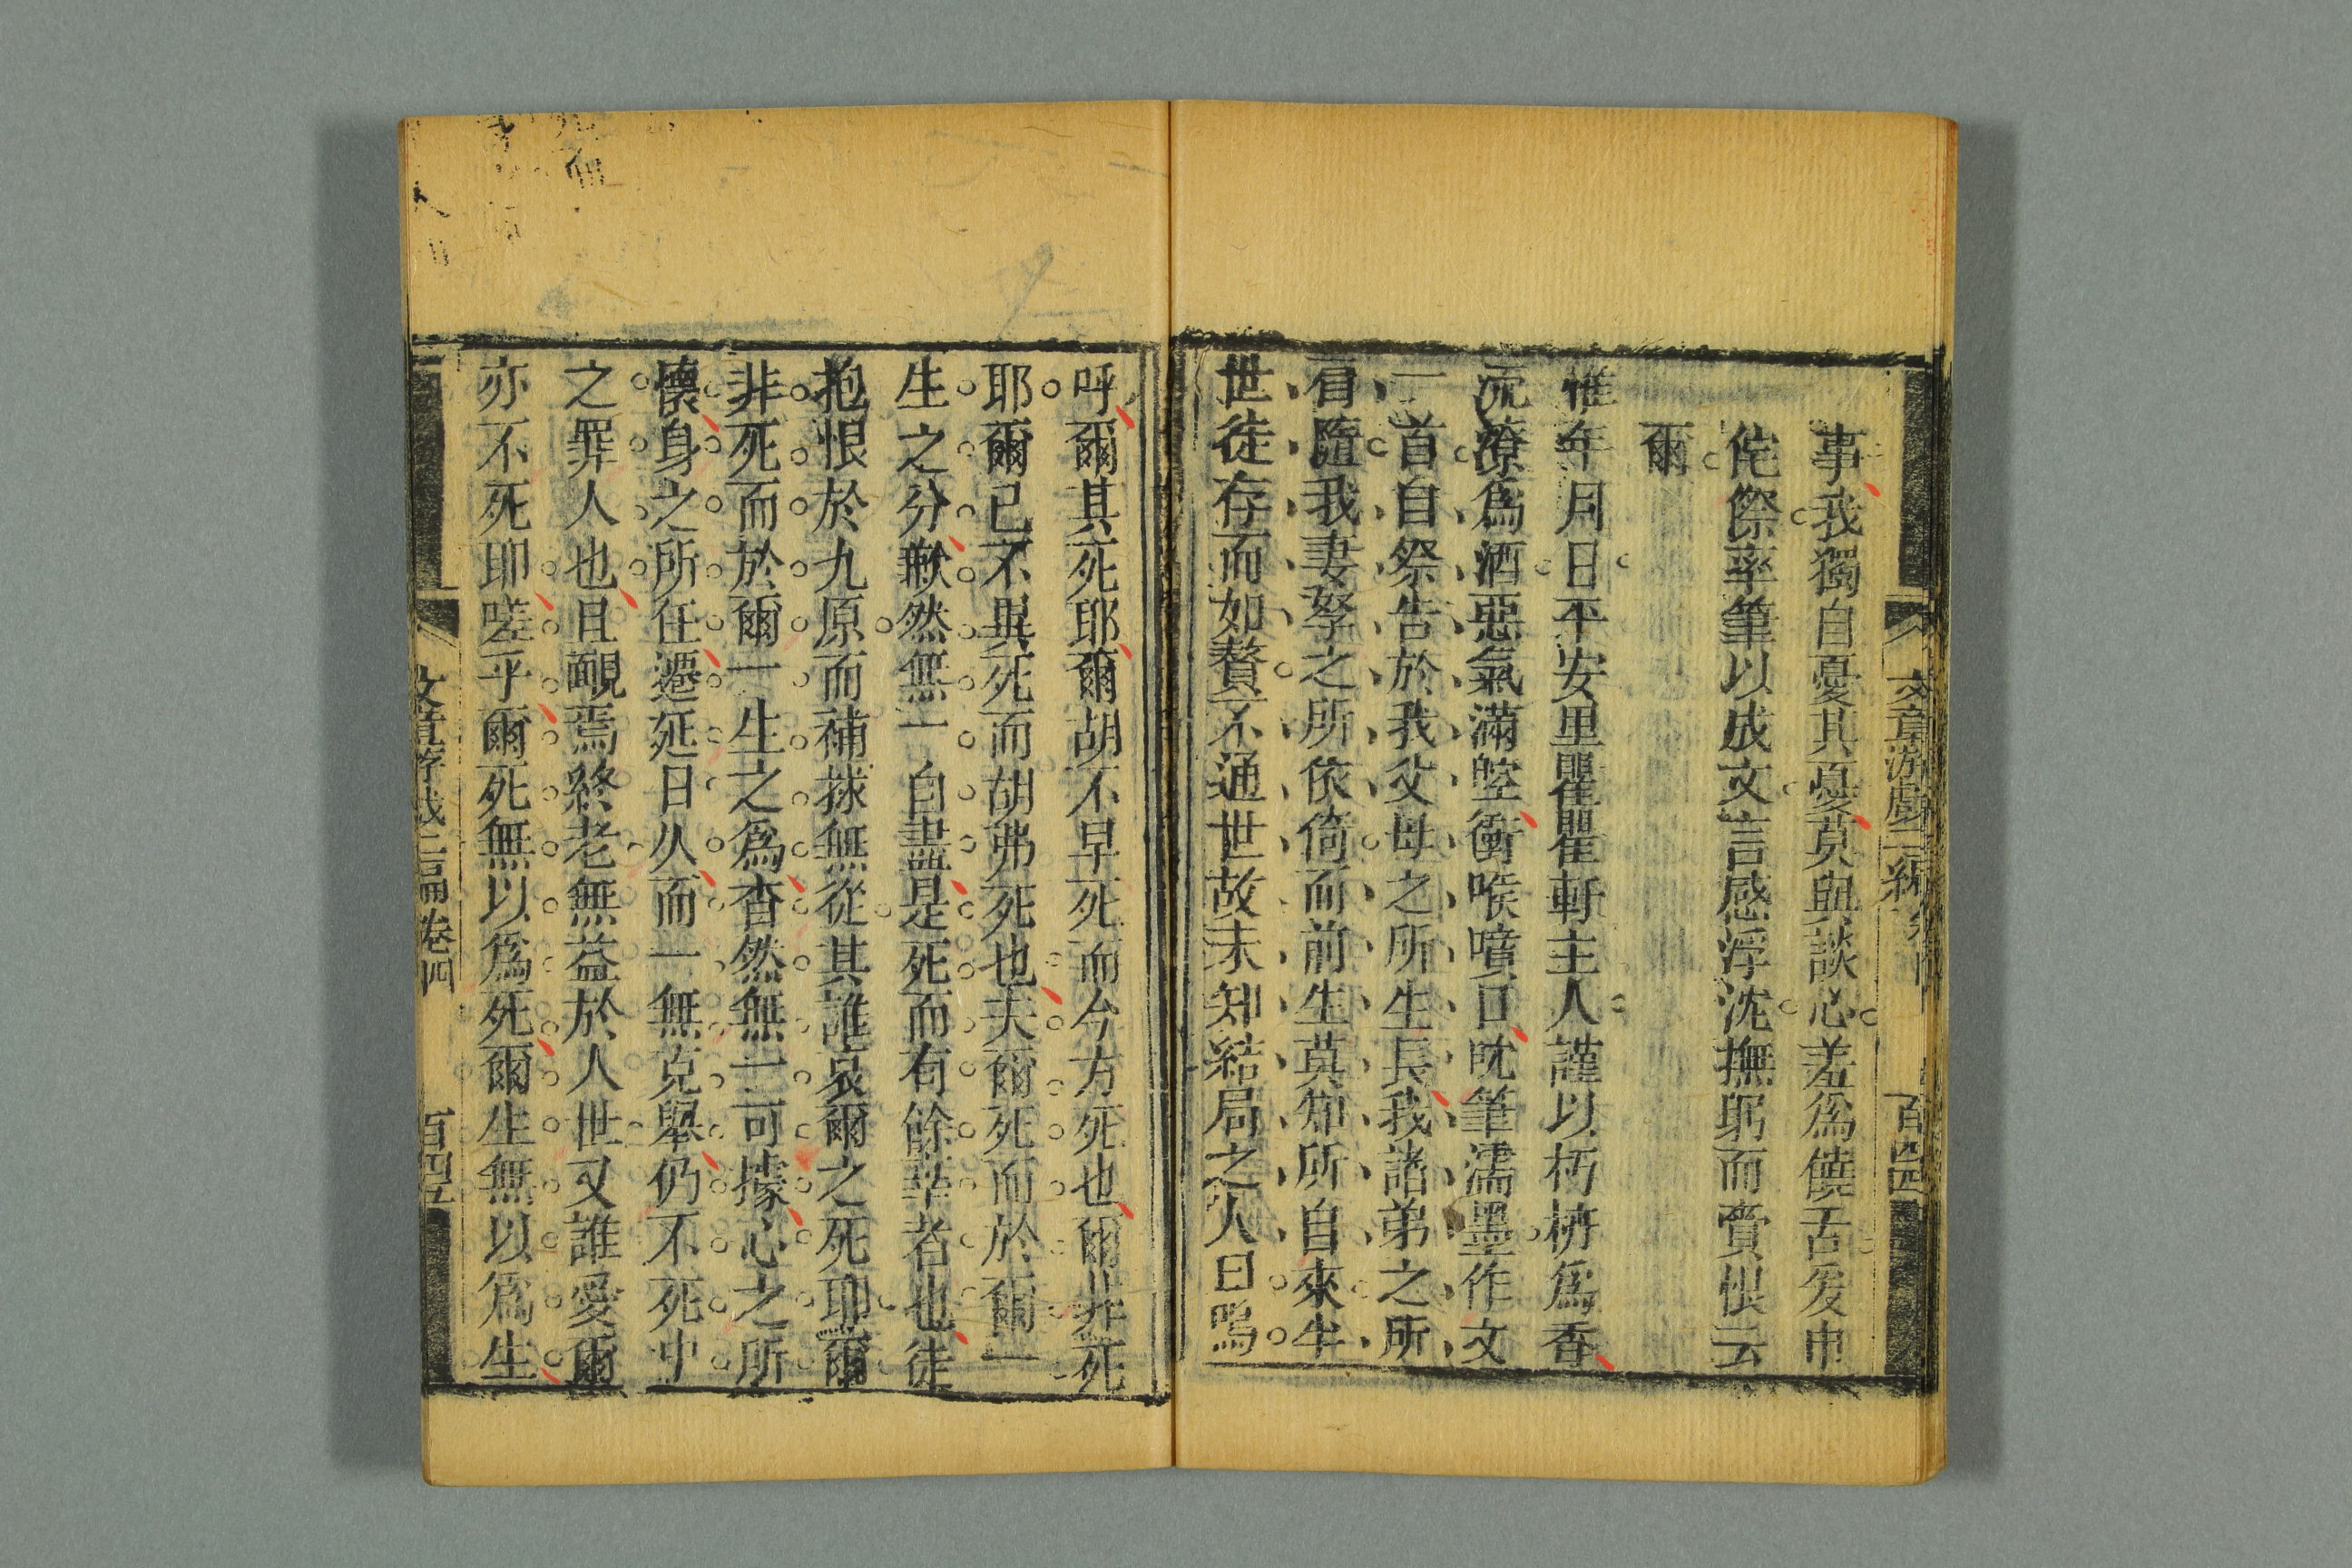 文章游戲二編卷四 百四四
事我獨自憂其憂莫與談心羞爲饒舌爰申
侘傺率筆以成文言感浮沈撫躬而賫恨云
爾
惟年月日平安里瞿瞿軒主人謹以朽枬爲香
沆瀣爲酒惡氣滿腔衝喉噴口呪筆濡墨作文
一首自祭告於我父母之所生長我諸弟之所
肩隨我妻孥之所依倚而前生莫知所自來半
世徒存而如贅不通世故未知結局之人曰嗚
呼爾其死耶爾胡不早死而今方死也爾非死
耶爾已不異死而胡弗死也夫爾死而於爾一
生之分歉然無一自盡是死而有餘辜者也徒
抱恨於九原而補捄無從其誰哀爾之死耶爾
非死而於爾一生之爲杳然無一可據心之所
懷身之所任遷延日久而一無克舉仍不死中
之罪人也且靦焉終老無益於人世又誰愛爾
亦不死耶嗟乎爾死無以爲死爾生無以爲生
文章游戲二編卷四 百四五